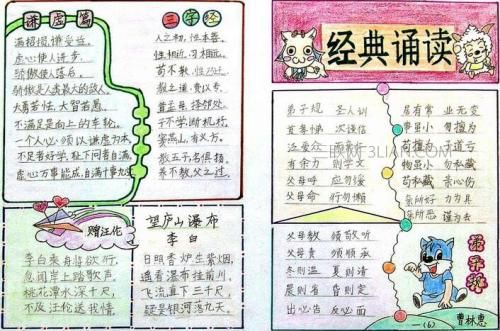 谦虚篇
满招损,谦受益。
虚心使人进步,
骄傲使人落后。
骄傲是人类最大的敌人。
大勇若怯,大智若愚。
不满足是向上的车轮。
一个人必须以谦虚为本。
不足者好学,耻下问者自满。
虚心万事能成,自满十事九空
三字经
人之初,性本善。
性相近,习相远。
苟不教,性乃迁。
教之道,贵以专。
昔孟母,择邻处。
子不学,断机杼。
窦燕山,有义方。
教五子,名俱扬。
养不教,父之过。
赠汪伦
李白乘舟将欲行,
忽闻岸上踏歌声。
桃花潭水深千尺,
不及汪伦送我情。
望庐山瀑布
李白
日照香炉生紫烟,
遥看瀑布挂前川。
飞流直下三千尺,
疑是银河落九天。
经典诵读
弟子规 圣人训
首孝悌 次谨信
泛爱众 而亲仁
有余力 则学文
父母呼 应勿缓
父母命 行勿懒
父母教 须敬听
父母责 须顺承
冬则温 夏则凊
晨则省 昏则定
出必告 反必面
居有常 业无变
事虽小 勿擅为
苟擅为 子道亏
物虽小 勿私藏
苟私藏 亲心伤
亲所好 力为具
亲所恶 谨为去
弟子规
一(6)
曹林惠
3LIAN.COM